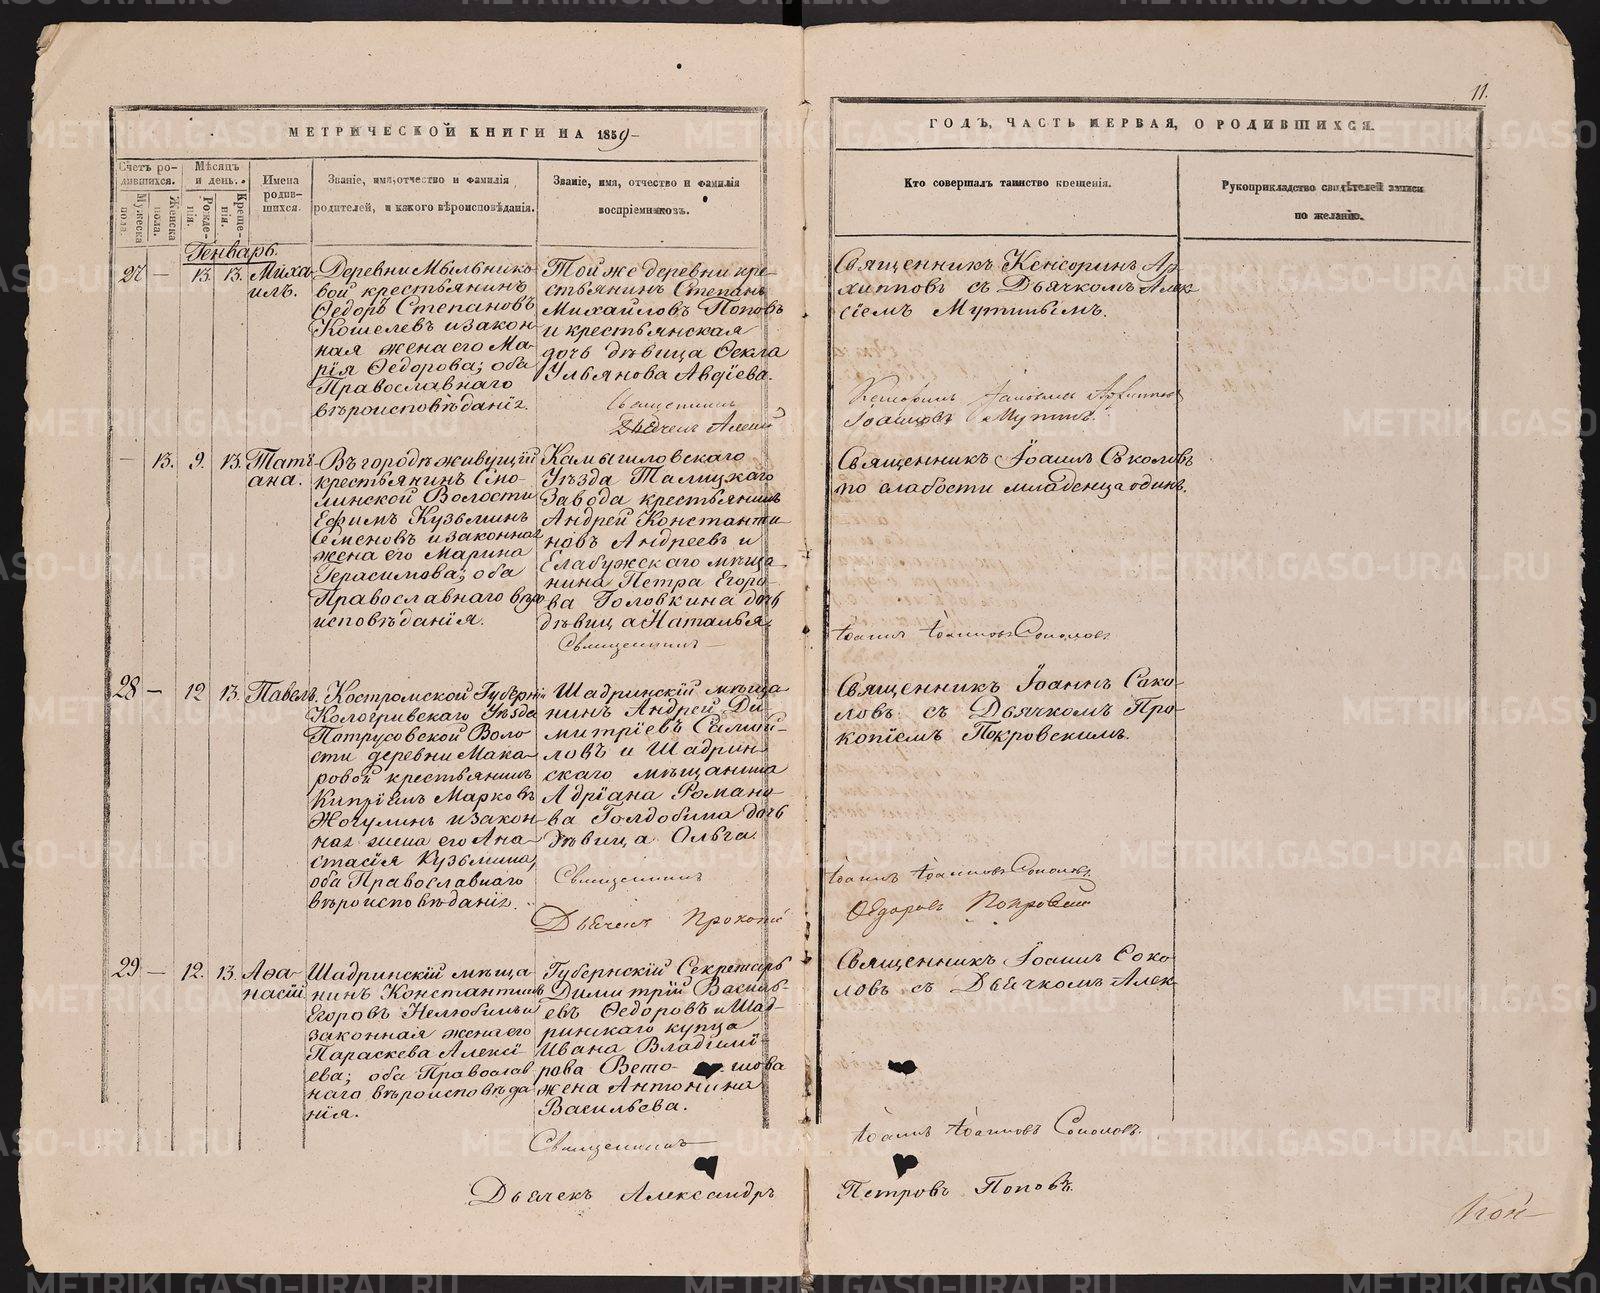 11.
МЕТРИЧЕСКОЙ КНИГИ НА 1859
ГОДЪ, ЧАСТЬ ПЕРВАЯ, О РОДИВШИХСЯ.
Счетъ родившихся.
Мужеска пола.
Женска пола.
Мѣсяцъ и день.
Рожденія.
Крещенія.
Имена родившихся.
Званіе, имя, отчество и фамилія
родителей, и какого вѣроисповѣданія.
Званіе, имя, отчество и фамилія
воспріемниковъ.
Кто совершалъ таинство крещенія.
Рукоприкладство свидѣтелей записи
по желанію.
Генварь.
27 — 13. 13. Михаилъ.
Деревни Мыльнико-
вой крестьянинъ
Ѳедоръ Степановъ
Кошелевъ и закон-
ная жена его Ма-
рія Ѳедорова; оба
Православнаго
вѣроисповѣданія.
Той же деревни кре-
стьянинъ Степанъ
Михайловъ Поповъ
и крестьянская
дочь дѣвица Ѳекла
Ульянова Авдіева.
Священникъ Кенсоринъ Ар-
хипповъ съ Дьячкомъ Алек
сіемъ Мутинымъ.
Священникъ Кенсоринъ Архиповъ
Дьячекъ Алексій Мутинъ.
— 13. 9. 13. Татіана.
Въ городѣ живущій
крестьянинъ
Волости
Ефимъ Кузьминъ
Семеновъ и законная
жена его Марина
Герасимова; оба
Православнаго вѣро
исповѣданія.
Камышловскаго
Уѣзда Талицкаго
Завода крестьянинъ
Андрей Константи-
новъ Андреевъ и
Елабужскаго мѣща-
нина Петра Егоро-
ва Головкина дочь
дѣвица Наталья.
Священникъ Іоаннъ Соколовъ
по слабости младенца одинъ.
Священникъ Іоаннъ Іоанновъ Соколовъ
28 — 12 13. Павелъ.
Костромской Губерніи
Кологривскаго Уѣзда
Патрусовской Воло
сти деревни Мака-
ровой крестьянинъ
Марковъ
и закон-
ная жена его Ана-
стасія Кузьмина,
оба Православнаго
вѣроисповѣданія.
Шадринскій мѣща
нинъ Андрей Ди-
митріевъ Самой-
ловъ и Шадрин-
скаго мѣщанина
Адріана Романо-
ва Голдобина дочь
дѣвица Ольга.
Священникъ Іоаннъ Соко-
ловъ съ Дьячкомъ Про-
копіемъ Покровскимъ.
Священникъ Іоаннъ Іоанновъ Соколовъ
Дьячекъ Прокопій Ѳедоровъ Покровскій
29 — 12. 13. Аѳанасій
Шадринскій мѣща
нинъ Константинъ
Егоровъ Нелюбинъ и
законная жена его
Параскева Алексі-
ева; оба Православ
наго вѣроисповѣда
нія.
Губернскій Секретарь
Димитрій Василь-
евъ Ѳедоровъ и Шад-
ринскаго купца
Ивана Владимі-
рова Ветошова
жена Антонина
Васильева.
Священникъ Іоаннъ Соко-
ловъ съ Дьячкомъ Алек-
Священникъ Іоаннъ Іоанновъ Соколовъ.
Дьячекъ Александръ Петровъ Поповъ.
METRIKI.GASO-URAL.RU